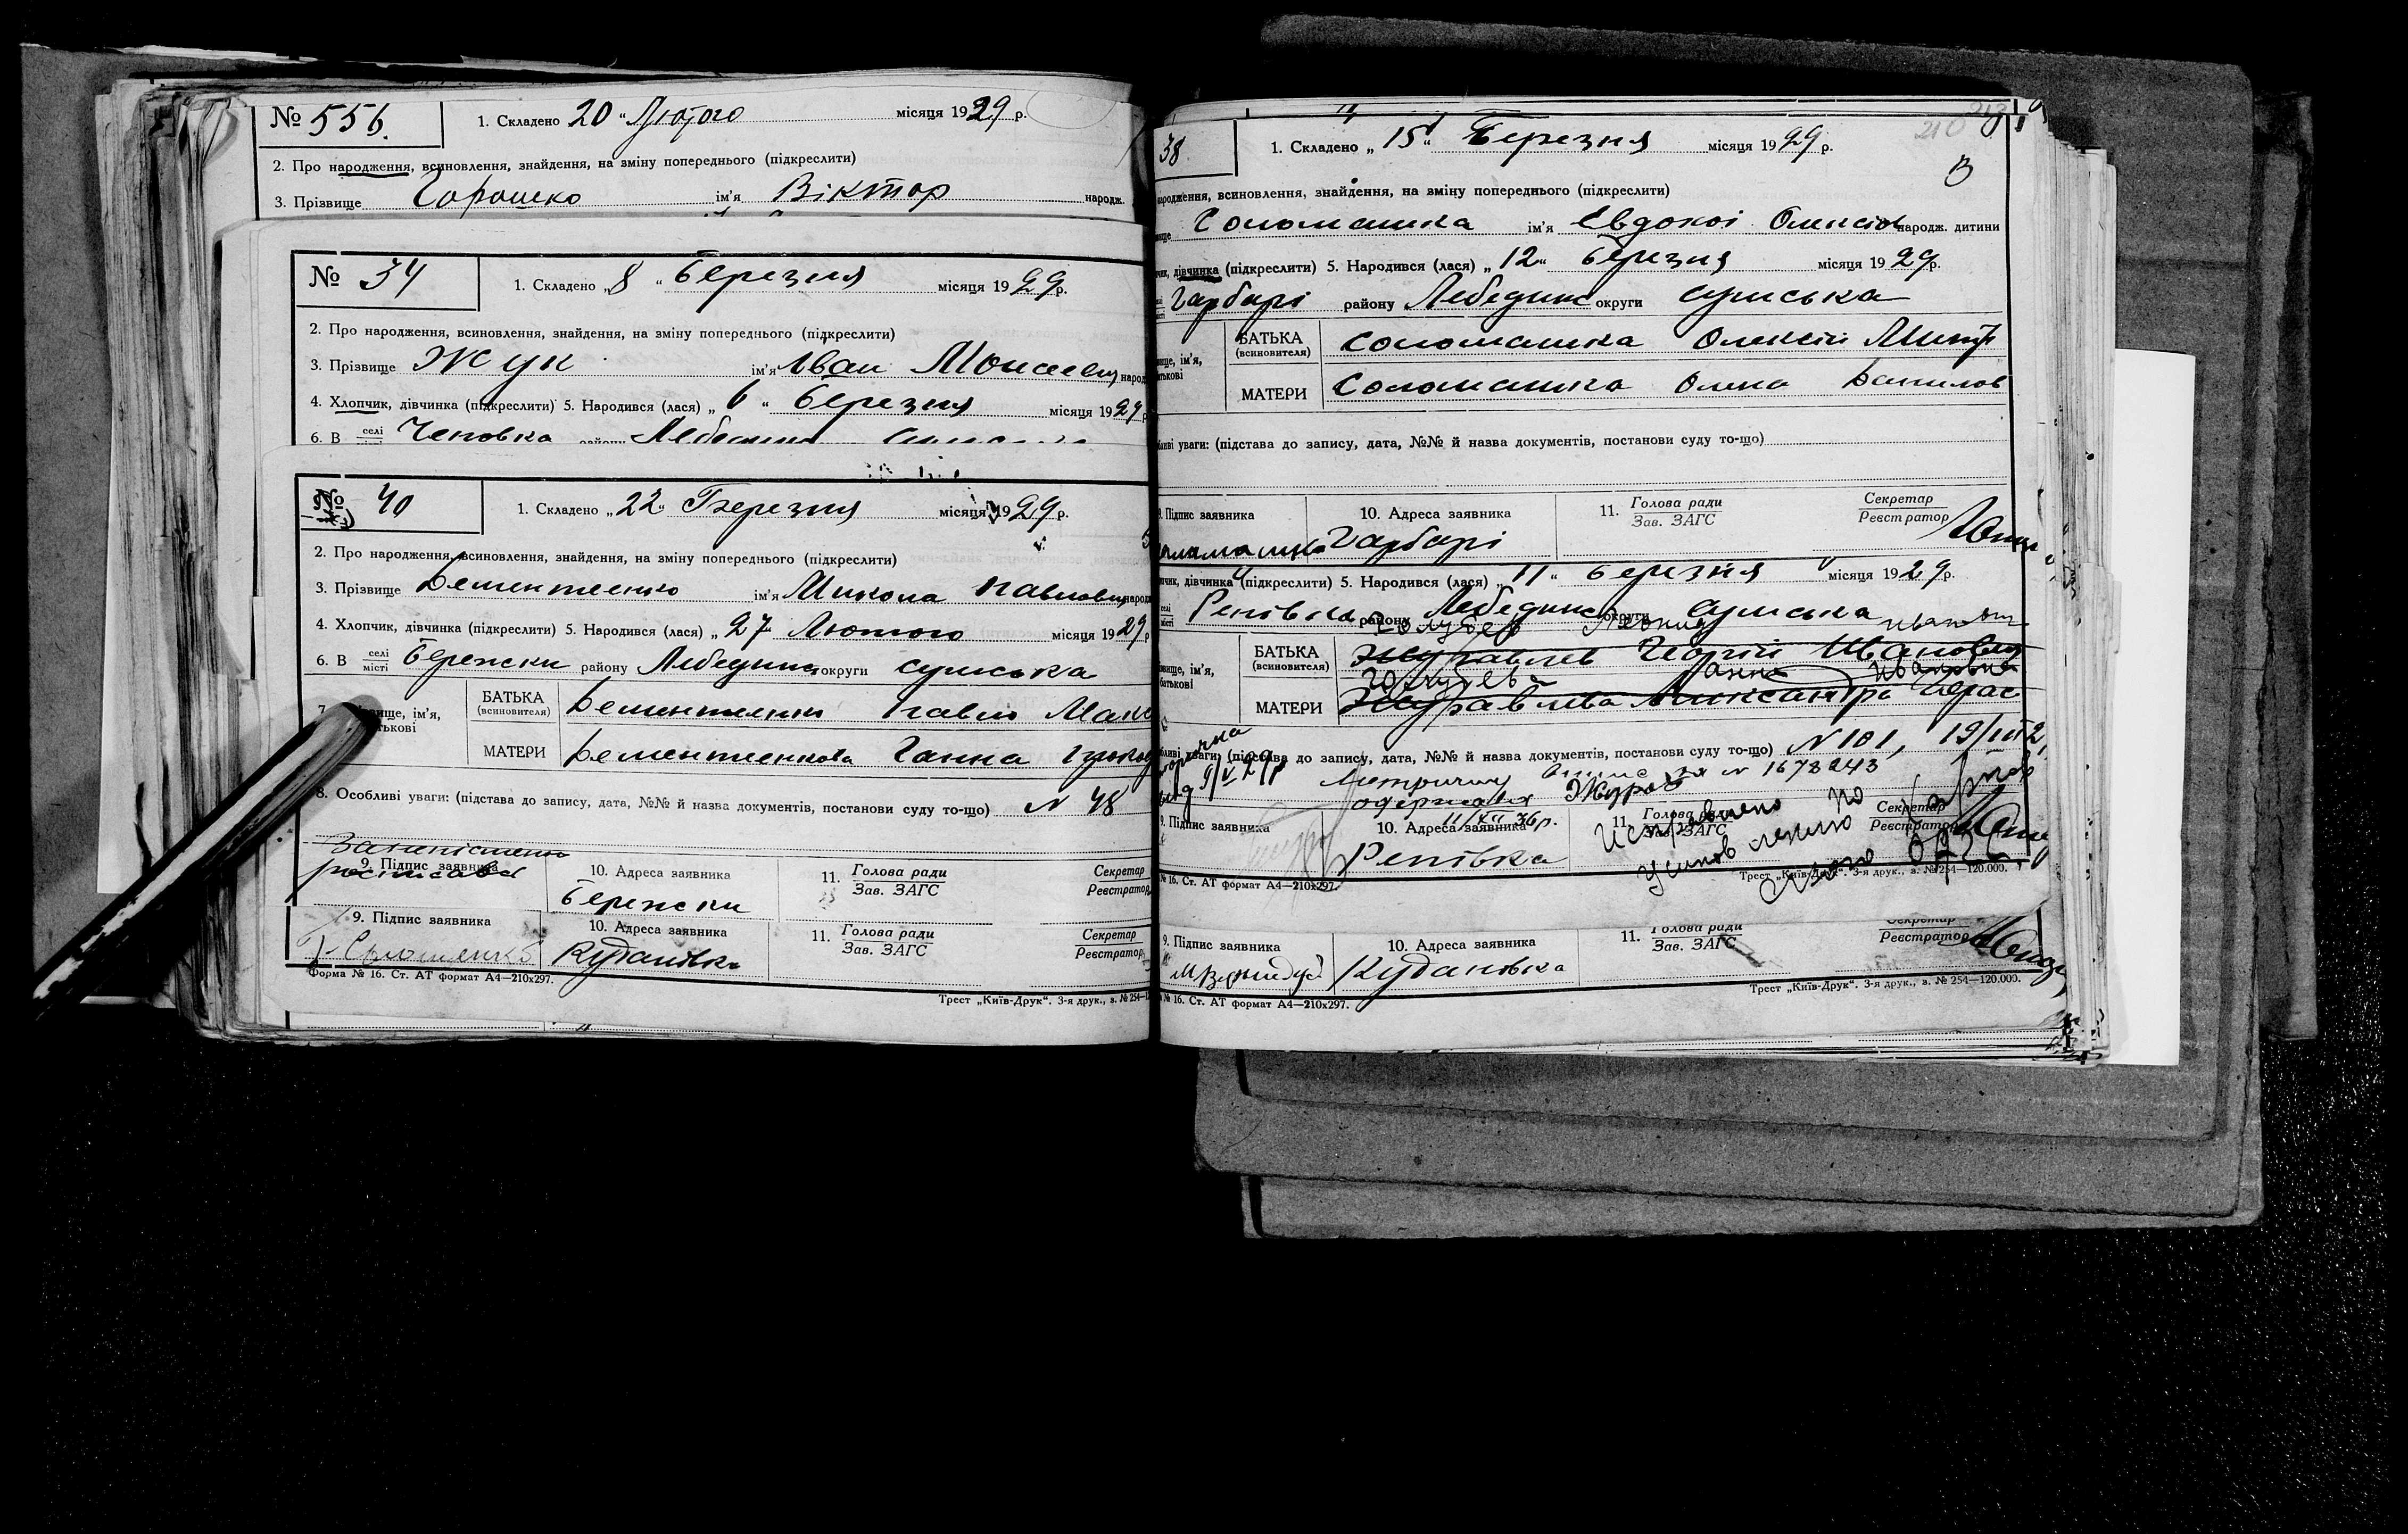 № 556. 1. Складено 20 " Лютого місяця 1929 р.
2. Про народження, всиновлення, знайдення, на зміну попереднього (підкреслити)
3. Прізвище Горошко ім'я Віктор народж.
№ 34 1. Складено „ 8 " березня місяця 1929 р.
2. Про народження, всиновлення, знайдення, на зміну попереднього (підкреслити)
3. Прізвище Жук ім'я Іван народ
4. Хлопчик, дівчинка (підкреслити) 5. Народився (лася) „ 6 " березня місяця 1929 р
6. В селі
№ 40 1. Складено „ 22 " Березня місяця 1929 р.
2. Про народження, всиновлення, знайдення, на зміну попереднього (підкреслити)
3. Прізвище Дементеенко ім'я Микола Павлович народ
4. Хлопчик, дівчинка (підкреслити) 5. Народився (лася) „ 27 Лютого місяця 1929 р
6. В селі місті Бережки району Лебединс округи сумська
7. ім'я, БАТЬКА (всиновителя) Павло
МАТЕРИ Ганна
8. Особливі уваги: (підстава до запису, дата, №№ й назва документів, постанови суду то-що) N 48
9. Підпис заявника 10. Адреса заявника 11. Голова ради Зав. ЗАГС Секретар Реєстратор
Бережки
9. Підпис заявника 10. Адреса заявника 11. Голова ради Зав. ЗАГС Секретар Реєстратор
Кудановка
Форма № 16. Ст. АТ формат А4—210х297.
Трест „Київ-Друк". 3-я друк., з. № 254—1
210 213
38 1. Складено „ 15 " Березня місяця 1929 р.
В
народження, всиновлення, знайдення, на зміну попереднього (підкреслити)
Соломашка ім'я Евдокі народж. дитини
дівчинка (підкреслити) 5. Народився (лася) „ 12 " березня місяця 1929 р.
Гарбарі району Лебединс округи сумська
БАТЬКА (всиновителя) Соломашка Олексій
МАТЕРИ Соломашка Олена Данилов
уваги: (підстава до запису, дата, №№ й назва документів, постанови суду то-що)
9. Підпис заявника 10. Адреса заявника 11. Голова ради Зав. ЗАГС Секретар Реєстратор
Гарбарі
дівчинка (підкреслити) 5. Народився (лася) „ 11 " березня місяця 1929 р.
Репівка району Лебединс округи сумська
Голубев
БАТЬКА (всиновителя) Журавлев Георгій Иванович
Голубева Анна Ивановна
МАТЕРИ Журавлева Александра Герас
уваги: (підстава до запису, дата, №№ й назва документів, постанови суду то-що) N 101, 19/III 2
9/V 29р N 1678243
одержала Журав
11/XII 36р.
9. Підпис заявника 10. Адреса заявника 11. Голова ради Зав. ЗАГС Секретар Реєстратор
Репівка
Исправлено по
№ 16. Ст. АТ формат А4—210х297.
Трест „Київ-Друк". 3-я друк., з. № 254—120.000.
9. Підпис заявника 10. Адреса заявника 11. Голова ради Зав. ЗАГС Секретар Реєстратор
Кудановка
№ 16. Ст. АТ формат А4—210х297.
Трест „Київ-Друк". 3-я друк., з. № 254—120.000.